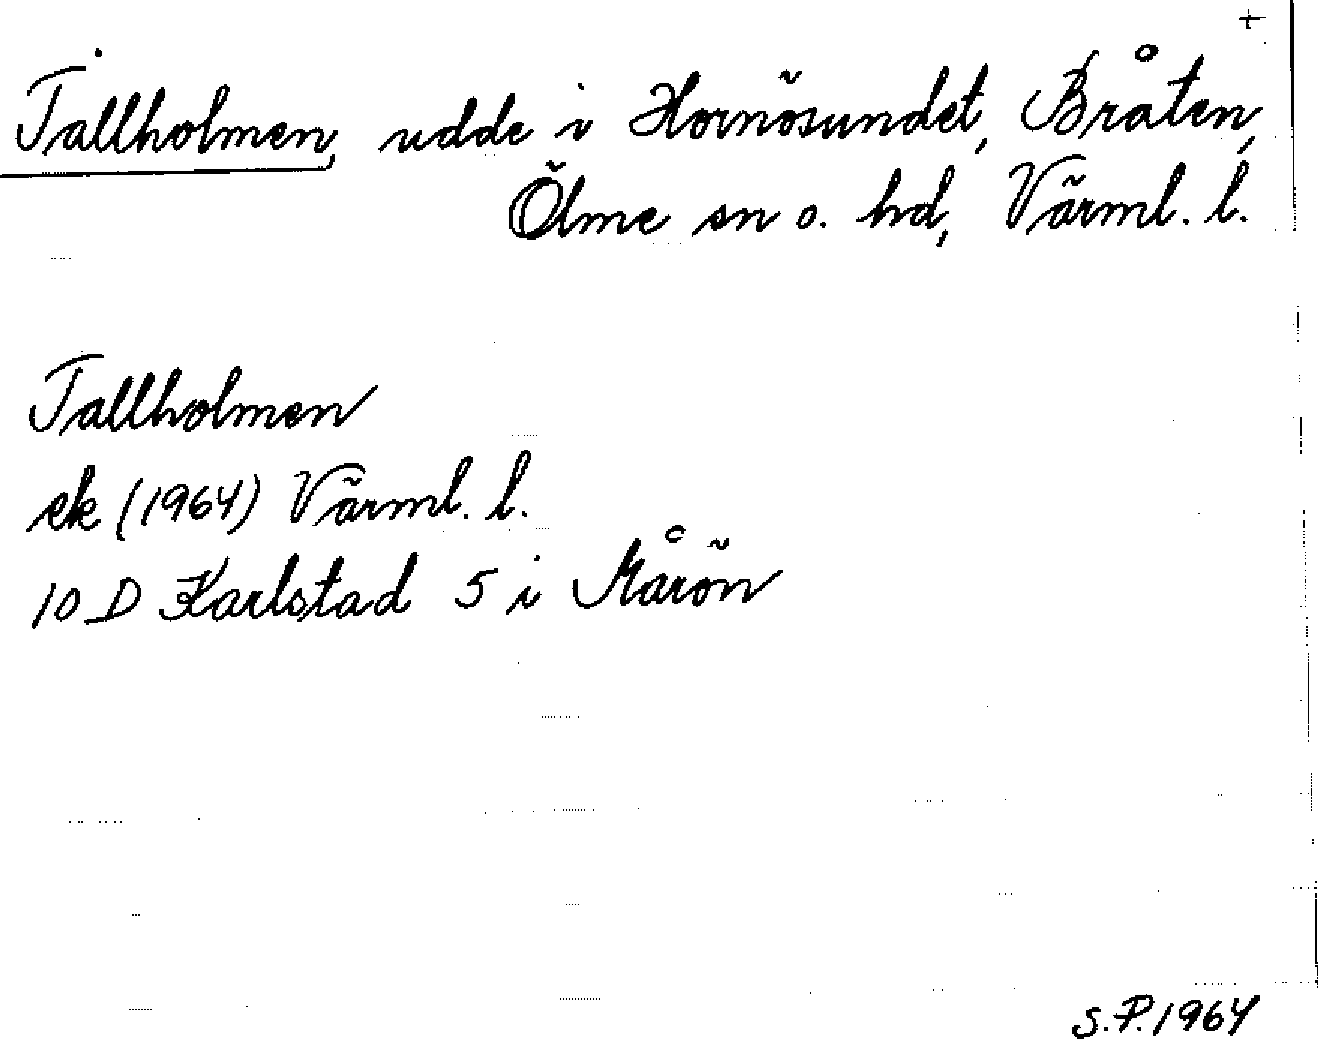 +
Tallholmen, udde i Hornösundet, Bråten,
Ölme sn o. hd, Värml. l.
Tallholmen
ek (1964) Värml. l.
10 D Karlstad 5 i Mårön
S.P. 1964